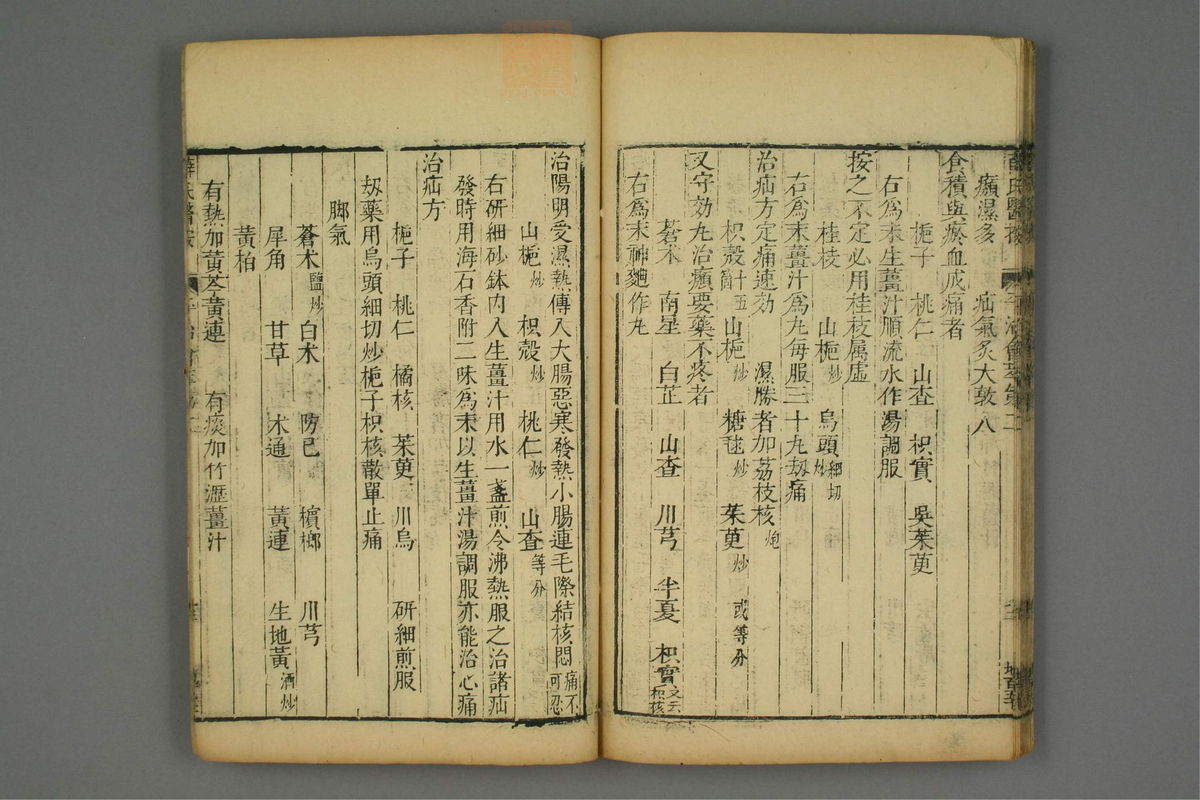 薛氏醫按
癲濕多 疝氣炙大敦八
食積與瘀血成痛者
梔子 桃仁 山查 枳實 吳茱萸
右爲末生薑汁順流水作湯調服
按之不定必用桂枝屬虛
桂枝 山梔炒 烏頭細切炒
右爲末薑汁爲丸每服三十丸刼痛
治疝方定痛速效 濕勝者加荔枝核炮
枳殼十五箇 山梔炒 糖毬炒 茱萸炒 或等分
又守効丸治癩要藥不疼者
蒼朮 南星 白芷 山查 川芎 半夏 枳實又云枳核
右爲末神麯作丸
治陽明受濕熱傳入大腸惡寒發熱小腸連毛際結核悶痛不可忍
山梔炒 枳殼炒 桃仁炒 山查等分
右研細砂鉢內入生薑汁用水一盞煎令沸熱服之治諸疝
發時用海石香附二味爲末以生薑汁湯調服亦能治心痛
治疝方
梔子 桃仁 橘核 茱萸 川烏 研細煎服
刼藥用烏頭細切炒梔子枳核散單止痛
脚氣
蒼朮鹽炒 白朮 防己 檳榔 川芎
犀角 甘草 木通 黃連 生地黃酒炒
黃柏
有熱加黃芩黃連 有痰加竹瀝薑汁
薛氏醫按